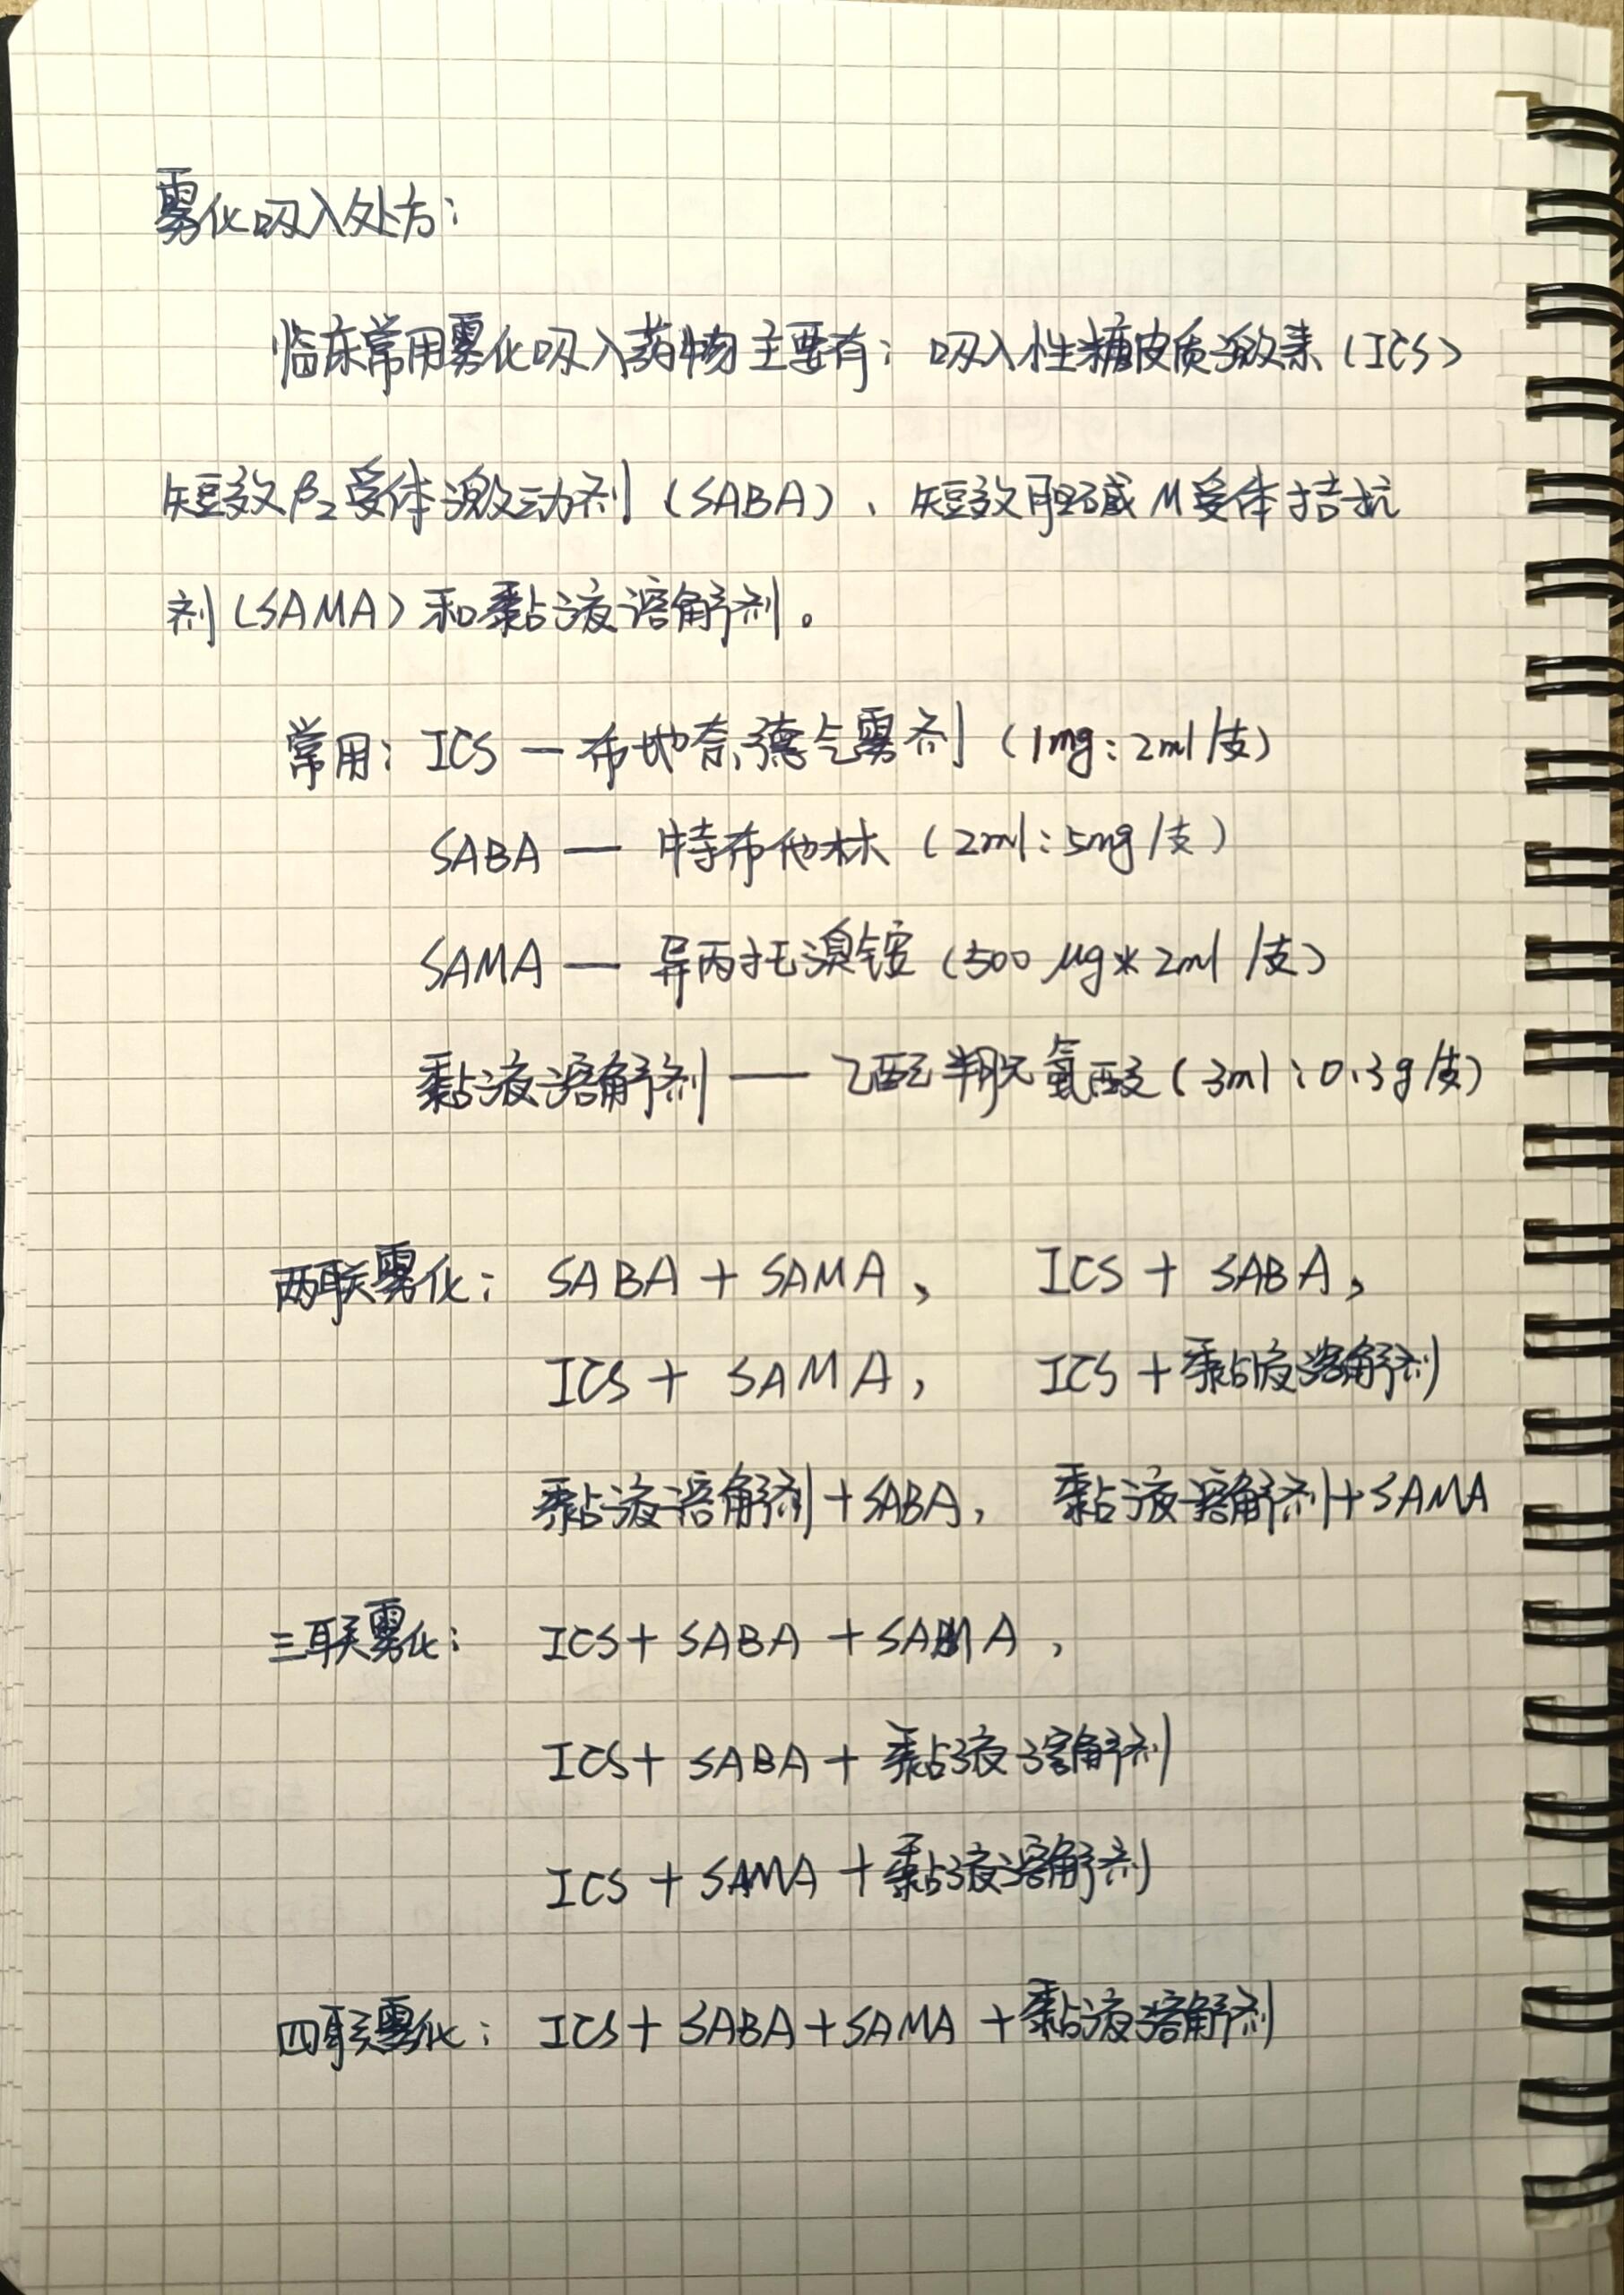 雾化吸入处方：
临床常用雾化吸入药物主要有：吸入性糖皮质激素（ICS）
短效β2受体激动剂（SABA）、短效胆碱M受体拮抗
剂（SAMA）和黏液溶解剂。
常用：ICS — 布地奈德气雾剂（1mg：2ml/支）
SABA — 特布他林（2ml：5mg/支）
SAMA — 异丙托溴铵（500μg*2ml/支）
黏液溶解剂 — 乙酰半胱氨酸（3ml：0.3g/支）
两联雾化：SABA + SAMA， ICS + SABA，
ICS + SAMA， ICS + 黏液溶解剂
黏液溶解剂+SABA， 黏液溶解剂+SAMA
三联雾化：ICS+ SABA +SAMA，
ICS+ SABA + 黏液溶解剂
ICS + SAMA + 黏液溶解剂
四联雾化：ICS+ SABA+SAMA +黏液溶解剂